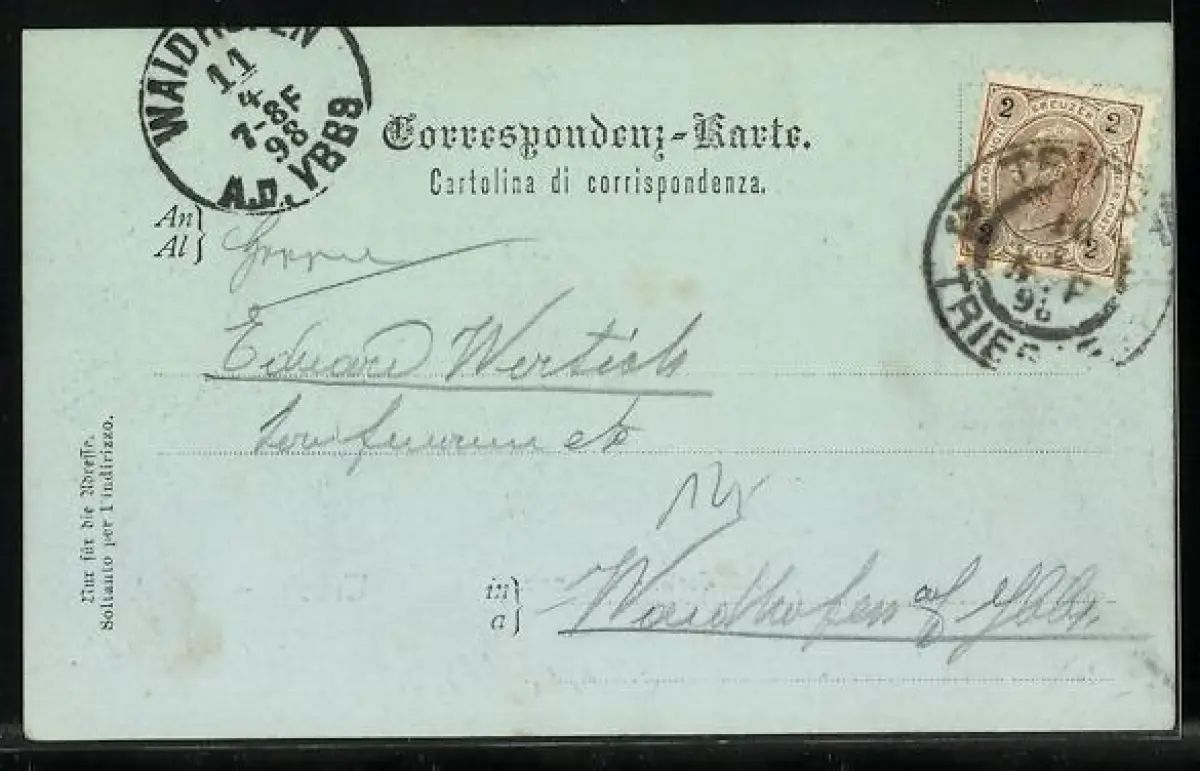 WAIDHOFEN
11
4
7-8F
98
A.D. YBBS
Correspondenz-Karte.
Cartolina di corrispondenza.
2 KREUZER 2
2 2
TRIEST
98
An
Al
Herrn
Eduard Wertich
etc
in
a
Waidhofen a/ Ybbs.
Nur für die Adresse.
Soltanto per l'indirizzo.